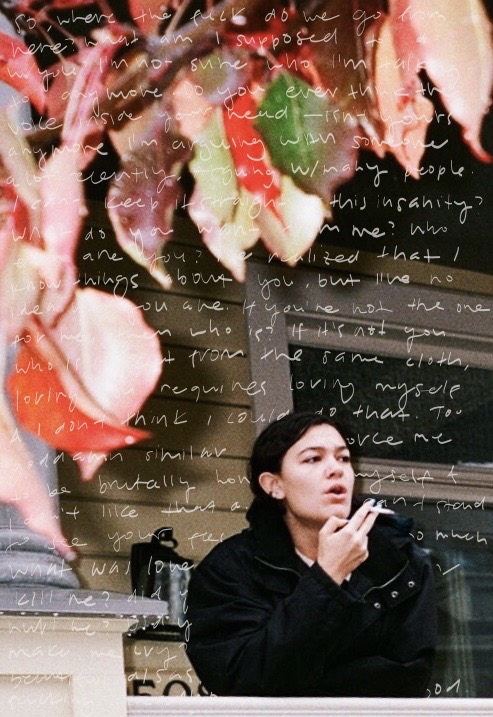 So, where the fuck do we go from
here? What am I supposed to
you. I'm not sure who I'm talking
to anymore. Do you ever think the
voice inside your head — isn't yours
anymore. I'm arguing with someone
a lot recently. Arguing w/ many people.
I can't keep it straight this insanity?
What do you want from me? Who
are you? I've realized that I
know things about you, but like no
idea you are. If you're not the one
for me then who is? If it's not you
who is cut from the same cloth,
loving requires loving myself
& I don't think I could do that. Too
goddamn similar force me
to be brutally myself &
don't like that can't stand
to see your so much
what was love
kill me? did y
hurt me? Did y
make me
because
508